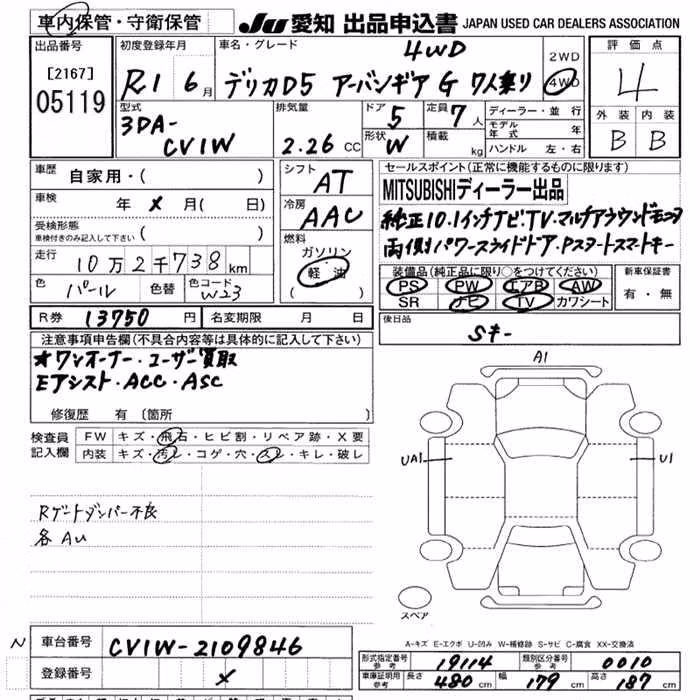 車内保管・守衛保管
JU 愛知 出品申込書 JAPAN USED CAR DEALERS ASSOCIATION
出品番号
[2167]
05119
初度登録年月
R1 6月
車名・グレード
4WD
デリカD5 アーバンギア G 7人乗り
2WD
4WD
評価点
4
外装 内装
B B
型式
3DA-
CV1W
排気量
2.26 CC
ドア 5
形状 W
定員 7人
積載 kg
ディーラー・並行
モデル年式 年
ハンドル 左・右
車歴 自家用・( )
車検 年 × 月( 日)
受検形態
車検付きのみ記入して下さい ( )
走行 10万2千738km
色 パール 色替 色コード W23
シフト AT
冷房 AAC
燃料
ガソリン
軽油
( )
セールスポイント(正常に機能するものに限ります)
MITSUBISHIディーラー出品
純正10.1インチナビ.TV.マルチアラウンドモニタ
両側パワースライドドア.Pスタートスマートキー
装備品(純正品に限り○をつけてください)
PS PW エアB AW
SR ナビ TV カワシート
新車保証書
有・無
R券 13750 円 名変期限 月 日
後日品
Sキー
注意事項申告欄(不具合内容等は具体的に記入して下さい)
★ワンオーナー・ユーザー買取
Eアシスト・ACC・ASC
修復歴 有 〔箇所 〕
検査員
記入欄
FW キズ・飛石・ヒビ割・リペア跡・X要
内装 キズ・汚レ・コゲ・穴・スレ・キレ・破レ
Rゲートダンパー不良
各AU
A1
UA1
U1
スペア
A-キズ E-エクボ U-凹み W-補修跡 S-サビ C-腐食 XX-交換済
N
車台番号 CV1W-2109846
登録番号 ×
形式指定番号 参考 19114
類別区分番号 参考 0010
車庫証明用 参考 長さ 480cm 幅 179cm 高さ 187cm